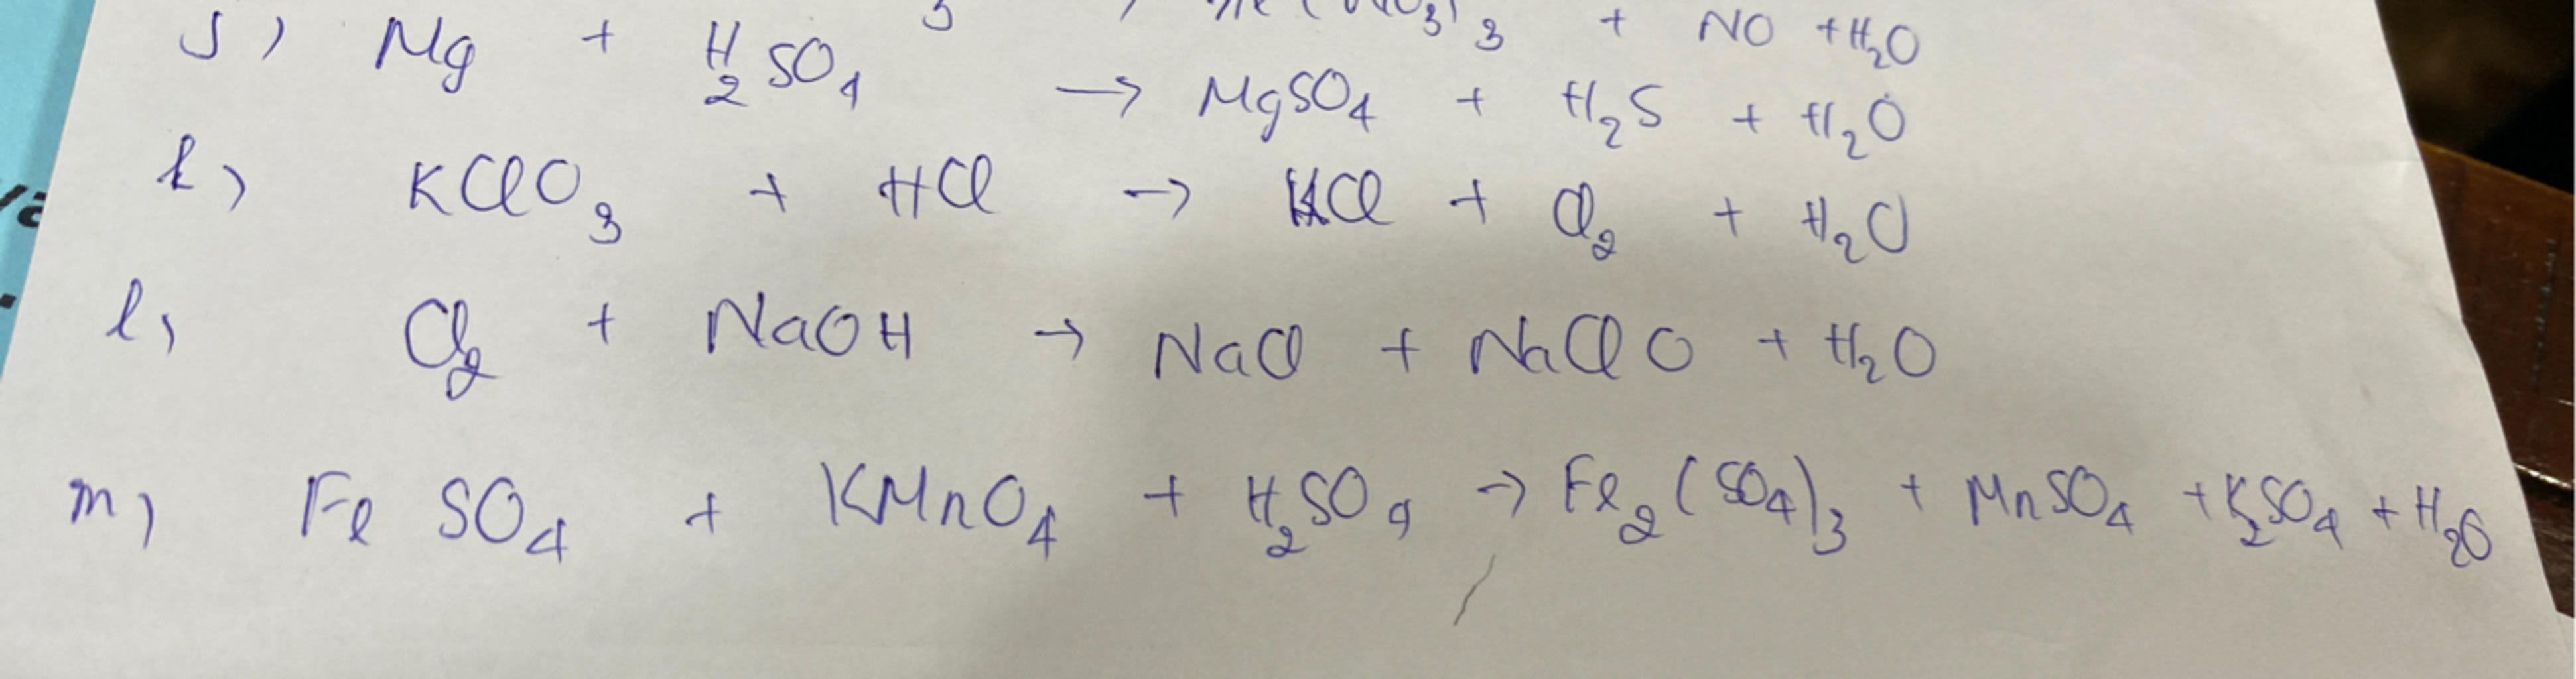 3 → (NO3)3 + NO + H2O
j) Mg + H2SO4 → MgSO4 + H2S + H2O
k) KClO3 + HCl → KCl + Cl2 + H2O
l, Cl2 + NaOH → NaCl + NaClO + H2O
m) FeSO4 + KMnO4 + H2SO4 → Fe2(SO4)3 + MnSO4 + K2SO4 + H2O